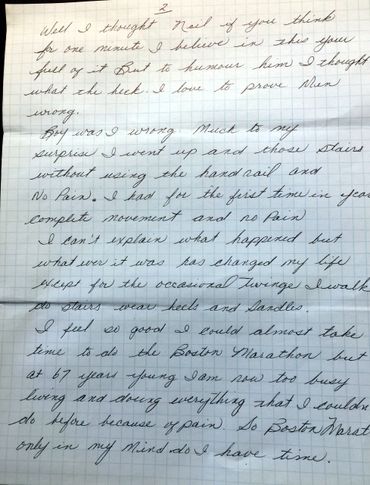 2
Well I thought Neil if you think
for one minute I believe in this your
full of it But to humour him I thought
what the heck. I love to prove Men
wrong.
Boy was I wrong. Much to my
surprise I went up and those stairs
without using the handrail and
No Pain. I had for the first time in year
complete movement and no Pain
I can't explain what happened but
what ever it was has changed my life
except for the occasional twinge I walk
do stairs wear heels and Sandles.
I feel so good I could almost take
time to do the Boston Marathon but
at 67 years young I am now too busy
living and doing everything that I couldn
do before because of pain. So Boston Marat
only in my Mind do I have time.